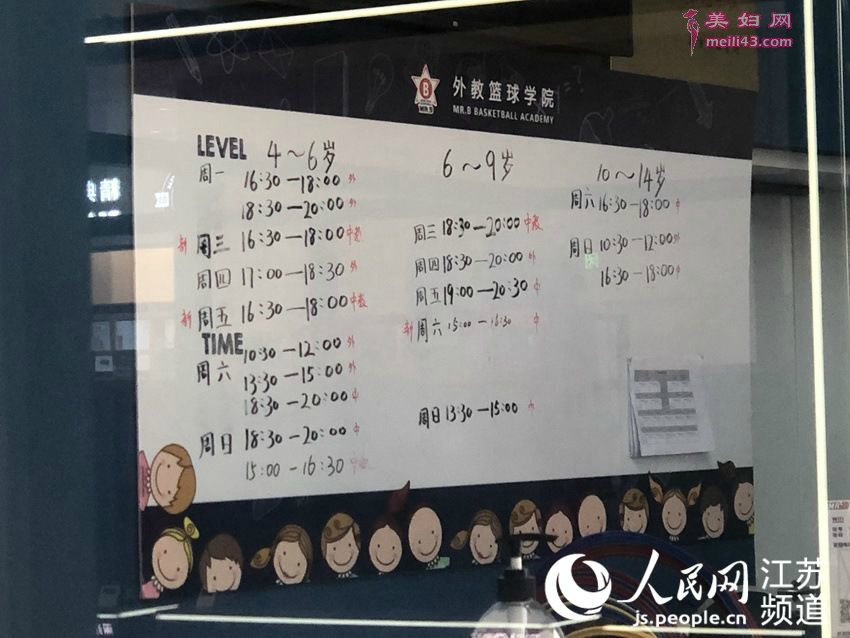 美妇网
meili43.com
外教篮球学院
MR.B BASKETBALL ACADEMY
B
MR.B
LEVEL 4～6岁
周一 16:30—18:00 外
18:30—20:00 外
新 周三 16:30—18:00 中教
周四 17:00—18:30 外
新 周五 16:30—18:00 中教
TIME
10:30—12:00 外
周六 13:30—15:00 外
18:30—20:00 中
周日 18:30—20:00 中
15:00—16:30 中教
6～9岁
周三 18:30—20:00 中教
周四 18:30—20:00 外
周五 19:00—20:30 中
新 周六 15:00—16:30 中
周日 13:30—15:00 中
10～14岁
周六 16:30—18:00 中
周日 10:30—12:00 外
16:30—18:00 中
人民网 江苏频道
js.people.cn